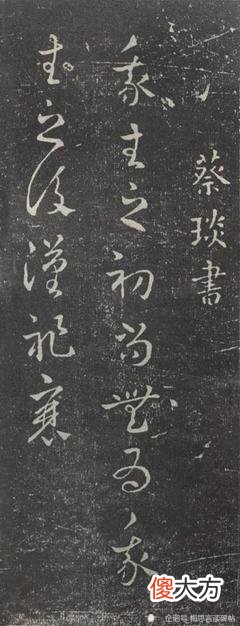 蔡琰書
我生之初尚無為我
生之後漢祚衰
傻大方
企鹅号 梅思言读碑帖